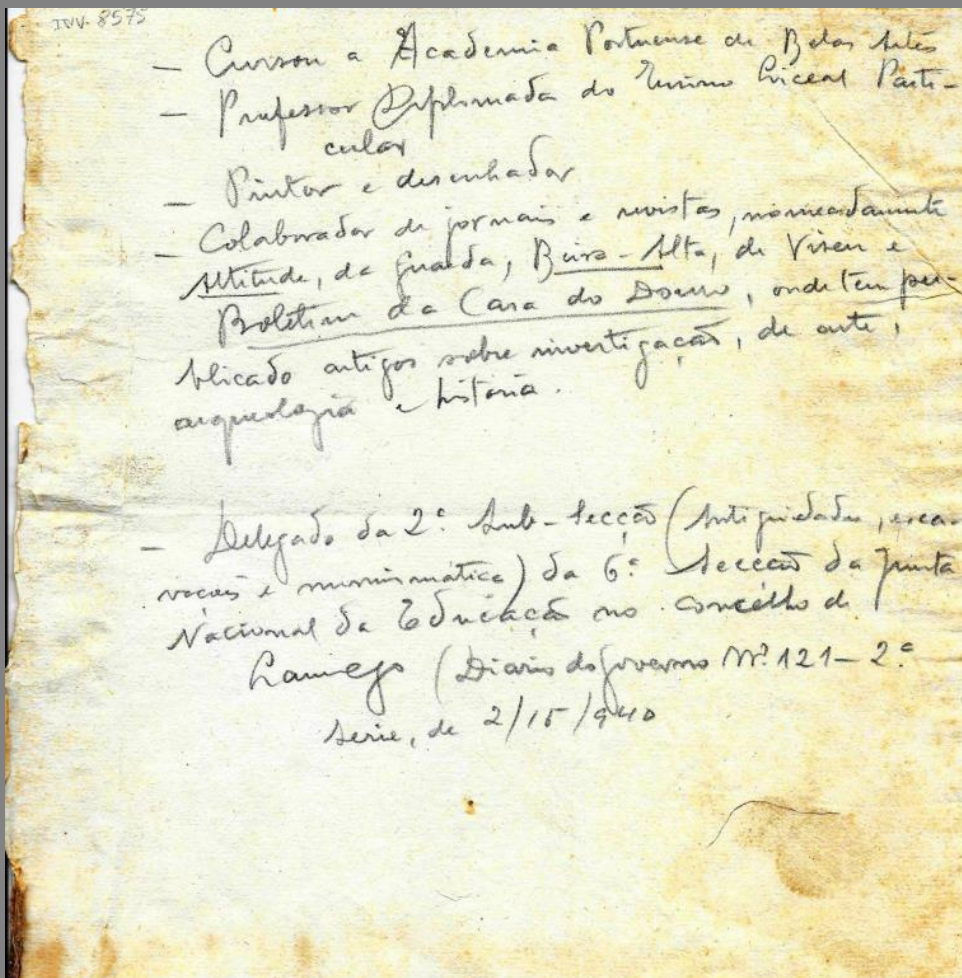 INV. 8575
— Cursou a Academia Portuense de Belas Artes
— Professor Diplomado do Ensino Liceal Parti-
cular
— Pintor e desenhador
— Colaborador de jornais e revistas, nomeadamente
Altitude, da Guarda, Beira-Alta, de Viseu e
Boletim da Casa do Douro, onde tem pu-
blicado artigos sobre investigação, de arte,
arqueologia e história.
— Delegado da 2ª Sub-Secção (Antiguidades, esca-
vações e numismática) da 6ª Secção da Junta
Nacional da Educação no concelho de
Lamego (Diario do Governo Nº 121 — 2ª
serie, de 2/15/940